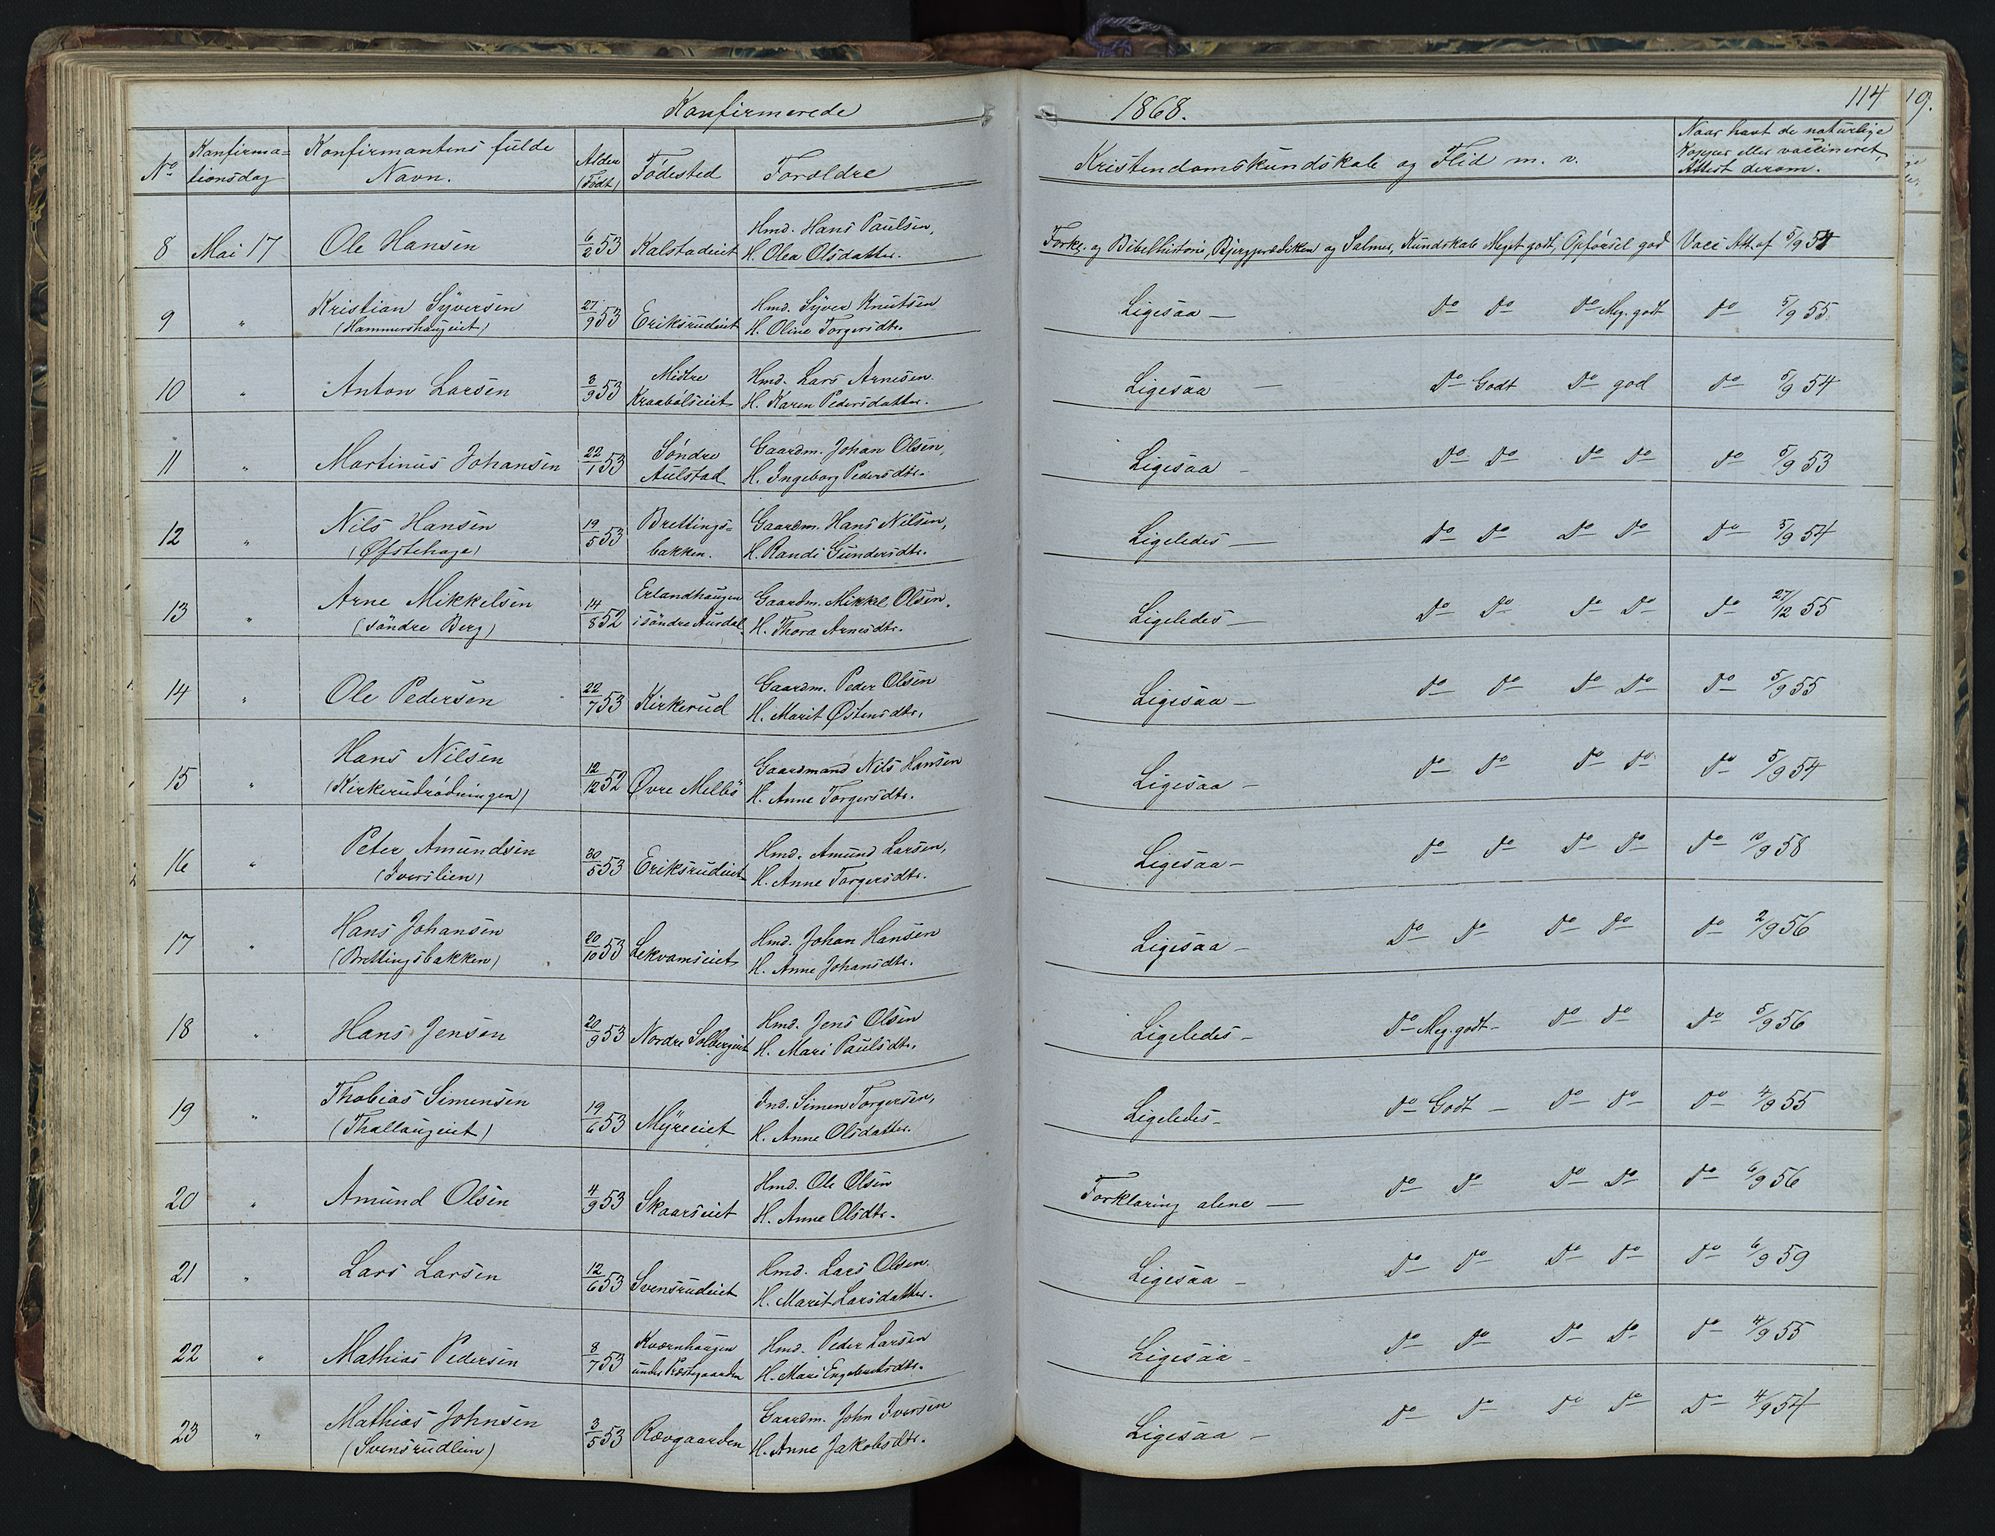 Konfirmerede 1868. 114
No Konfirmationsdag Konfirmantens fulde Navn. Alder (Født) Fødested Forældre Kristendomskundskab og Flid m. v. Naar havt de naturlige Kopper eller vaccineret, Attest derom.
8 Mai 17 Ole Hansen 6/2 53 Kalstadeiet Hmd. Hans Paulsen, H. Olea Olsdatter. Forkl. og Bibelhistorie, Bjergprædiken og Salmer, Kundskab Meget godt, Opførsel god Vacc Att. af 5/9 54
9 " Kristian Syversen (Hammershaugeiet) 27/9 53 Eriksrudeiet Hmd. Syver Knutsen H. Oline Torgersdtr. Ligesaa — Do Do Do Meg. godt Do 5/9 55.
10 " Anton Larsen 3/9 53 Midtre Kraabølseiet Hmd. Lars Arnesen. H. Karen Pedersdatter. Ligesaa — Do Godt Do god Do 5/9 54
11 " Martinus Johansen 22/1 53 Søndre Aulstad Gaardm. Johan Olsen, H. Ingeborg Pedersdtr. Ligesaa — Do Do Do Do Do 5/9 53
12 " Nils Hansen (Øfstehage) 19/5 53 Brettingsbakken. Gaardm. Hans Nilsen, H. Randi Gundersdtr. Ligeledes — Do Do Do Do Do 5/9 54
13 " Arne Mikkelsen (søndre Berg) 14/8 52 Erlandhaugen i søndre Aurdal Gaardm. Mikkel Olsen. H. Thora Arnesdtr. Ligeledes — Do Do Do Do Do 27/12 55
14 " Ole Pedersen 22/7 53 Kirkerud Gaardm. Peder Olsen H. Marit Østensdtr. Ligesaa — Do Do Do Do Do 5/9 55
15 " Hans Nilsen (Kirkerudrødningen) 12/12 52 Øvre Melbø Gaardmand Nils Hansen H. Anne Torgersdtr. Ligesaa — Do Do Do Do Do 5/9 54
16 " Peter Amundsen (Iverslien) 30/5 53 Eriksrudeiet Hmd. Amund Larsen, H. Anne Torgersdtr. Ligesaa — Do Do Do Do Do 10/9 58
17 " Hans Johansen (Brettingsbakken) 20/10 53 Lekvamseiet Hmd. Johan Hansen H. Anne Johansdtr. Ligesaa — Do Do Do Do Do 2/9 56
18 " Hans Jensen 20/9 53 Nordre Solbergeiet Hmd. Jens Olsen H. Mari Paulsdtr. Ligeledes — Do Meg. godt — Do Do Do 5/9 56
19 " Thobias Simensen (Thallaugeiet) 19/6 53 Myreeiet Ind. Simen Torgersen, H. Anne Olsdatter. Ligeledes — Do Godt — Do Do Do 4/9 55
20 " Amund Olsen 4/9 53 Skaarseiet Hmd. Ole Olsen H. Anne Olsdtr. Forklaring alene — Do Do Do Do Do 6/9 56
21 " Lars Larsen 12/6 53 Svensrudeiet Hmd. Lars Olsen. H. Marit Larsdatter. Ligesaa — Do Do Do Do Do 6/9 59
22 " Mathias Pedersen 8/7 53 Kværnhaugen under Præstegaarden Hmd. Peder Larsen H. Mari Engebretsdtr. Ligesaa — Do Do Do Do Do 4/9 55
23 " Mathias Johnsen (Svensrudlien) 3/5 53 Rævgaarden Gaardm. John Iversen H. Anne Jakobsdtr. Ligesaa — Do Do Do Do Do 4/9 54